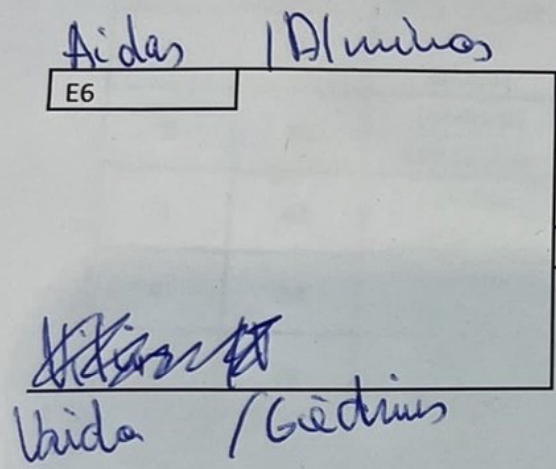 Aidas / Alminas
E6
Vaida / Giedrius